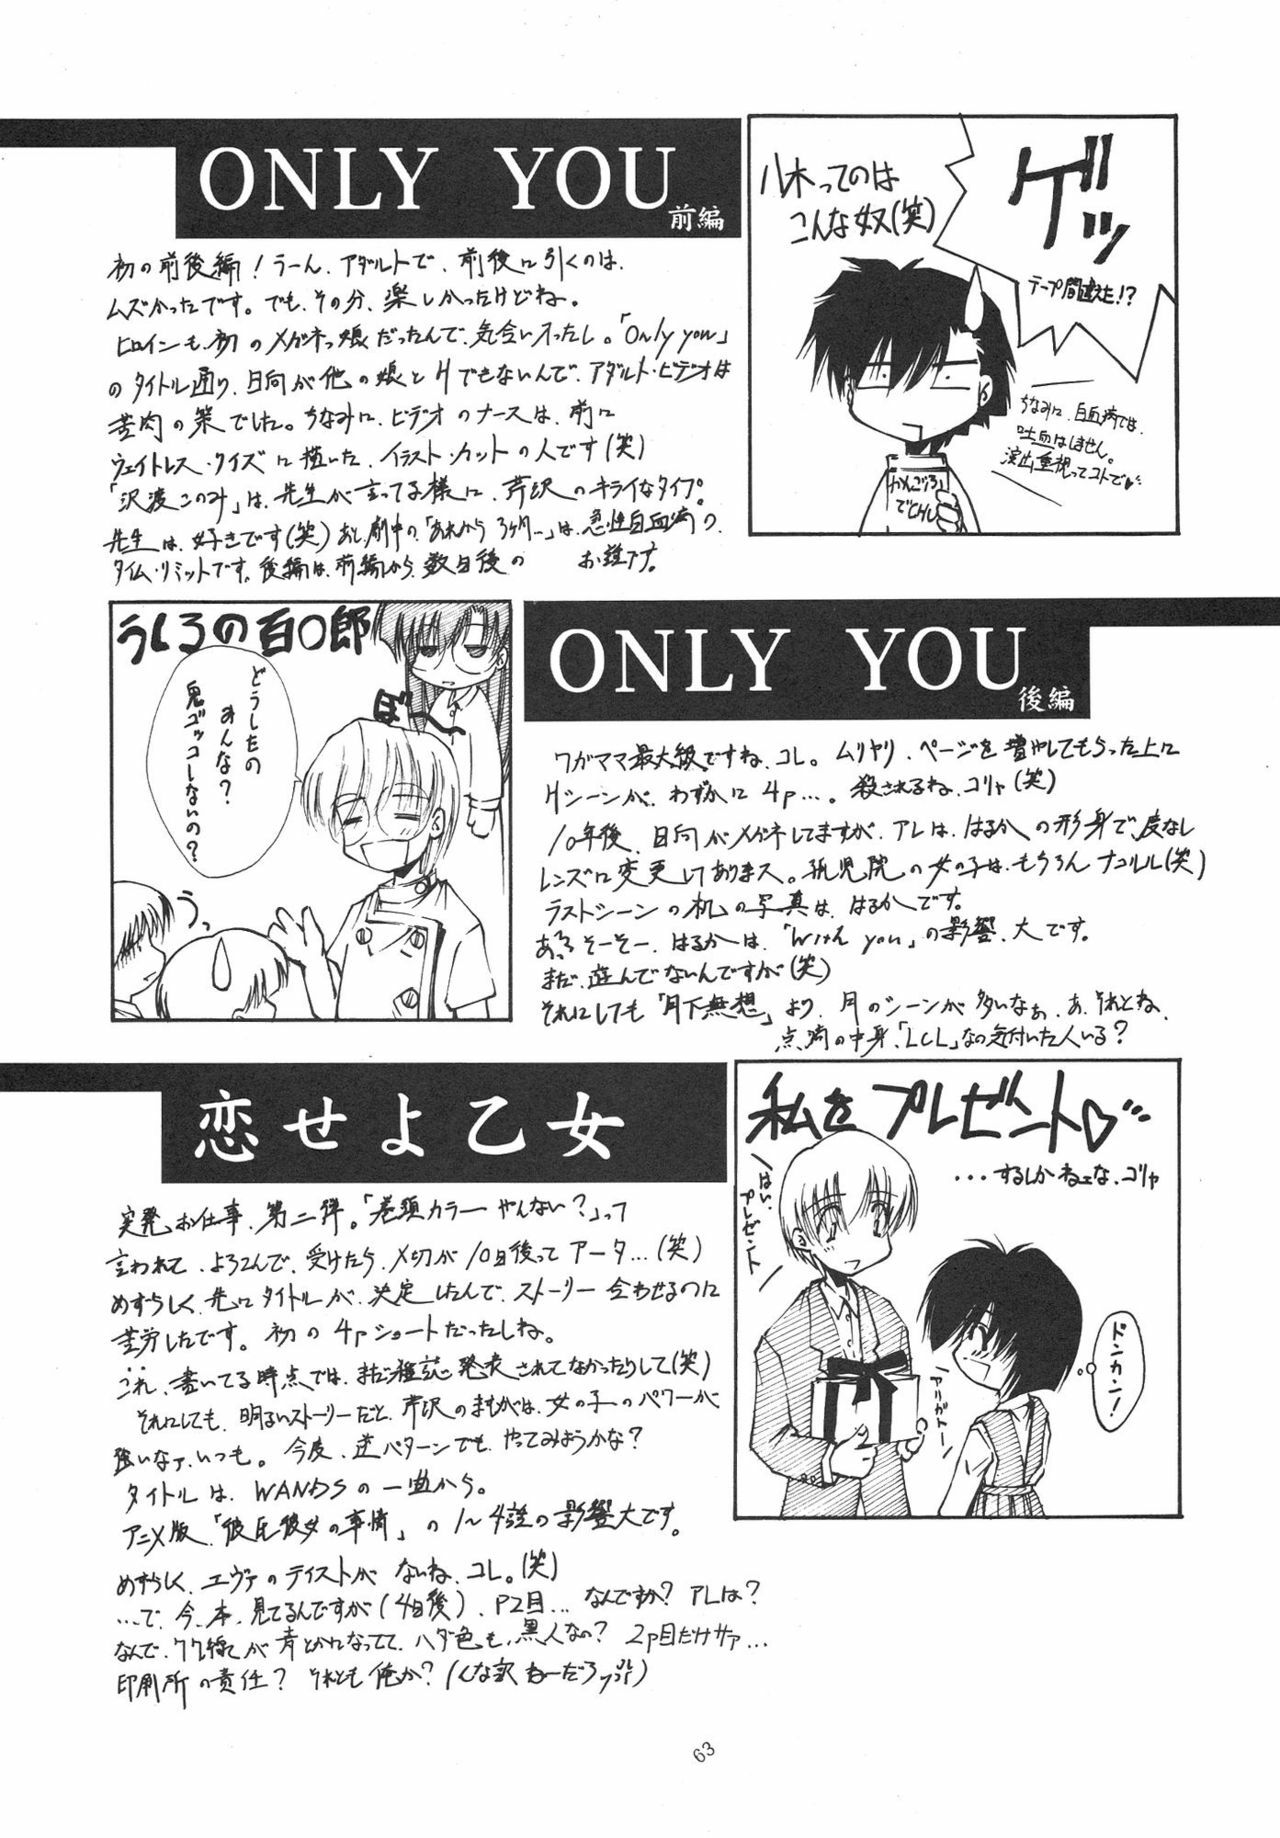 ONLY YOU
前編
初の前後編!うーん、アダルトで、前後に引くのは、
ムズかったです。でも、その分、楽しかったけどね。
ヒロインも、初のメガネっ娘だったんで、気合い入ったし。「Only you」
のタイトル通り、日向が他の娘とHでもないんで、アダルト・ビデオは
苦肉の策でした。ちなみに、ビデオのナースは、前に
ウェイトレス・クイズに描いた、イラスト・カットの人です(笑)
「沢渡このみ」は、先生が言ってる様に、芹沢のキライなタイプ。
先生は、好きです(笑)あと、劇中の「あれから3ヶ月…」は、急性白血病の、
タイム・リミットです。後編は、前編から、数日後の お話です。
八木ってのは
こんな奴(笑)
ゲッ
テープ間違えた!?
ちなみに、白血病では、
吐血はしません。
演出重視ってコトで♥
かんごふろ
でCHU
うしろの百〇郎
ぼ〜〜
どうしたの
みんな?
鬼ゴッコしないの?
うっ
ONLY YOU
後編
ワガママ最大級ですね、コレ。ムリヤリ、ページを増やしてもらった上に
Hシーンが、わずかに4p…。殺されるね、コリャ(笑)
10年後、日向がメガネしてますが、アレは、はるかの形身で度なし
レンズに変更してありまス。孤児院の女の子は、もちろんナコルル(笑)
ラストシーンの机の写真は、はるかです。
あっ、そーそー、はるかは、「With you」の影響、大です。
まだ、遊んでないんですが(笑)
それにしても「月下無想」より、月のシーンが多いなぁ、あ、それとね、
点滴の中身、「LCL」なの気付いた人いる?
恋せよ乙女
突発お仕事、第二弾。「巻頭カラーやんない?」って
言われて、よろこんで、受けたら、〆切が10日後ってアータ…(笑)
めずらしく、先にタイトルが、決定したんで、ストーリー合わせるのに
苦労したです。初の4pショートだったしね。
これ、書いてる時点では、まだ雑誌発表されてなかったりして(笑)
それにしても、明るいストーリーだと、芹沢のまもがは、女の子のパワーが
強いなァ、いつも。今度、逆パターンでも、やってみようかな?
タイトルは、WANDSの一曲から。
アニメ版「彼氏彼女の事情」の1〜4話の影響大です。
めずらしく、エヴァのテイストがないね、コレ。(笑)
…で、今、本、見てるんですが(4日後)、P2目…なんですか?アレは?
なんで、ワク線が青とかになってて、ハダ色も、黒人なの?2p目だけサァ…
印刷所の責任?それとも俺か?(んな訳ねーだろ)
私をプレゼント♡
…するしかねェな、コリャ
はい、プレゼント
ドンカン!
アリガトー
63